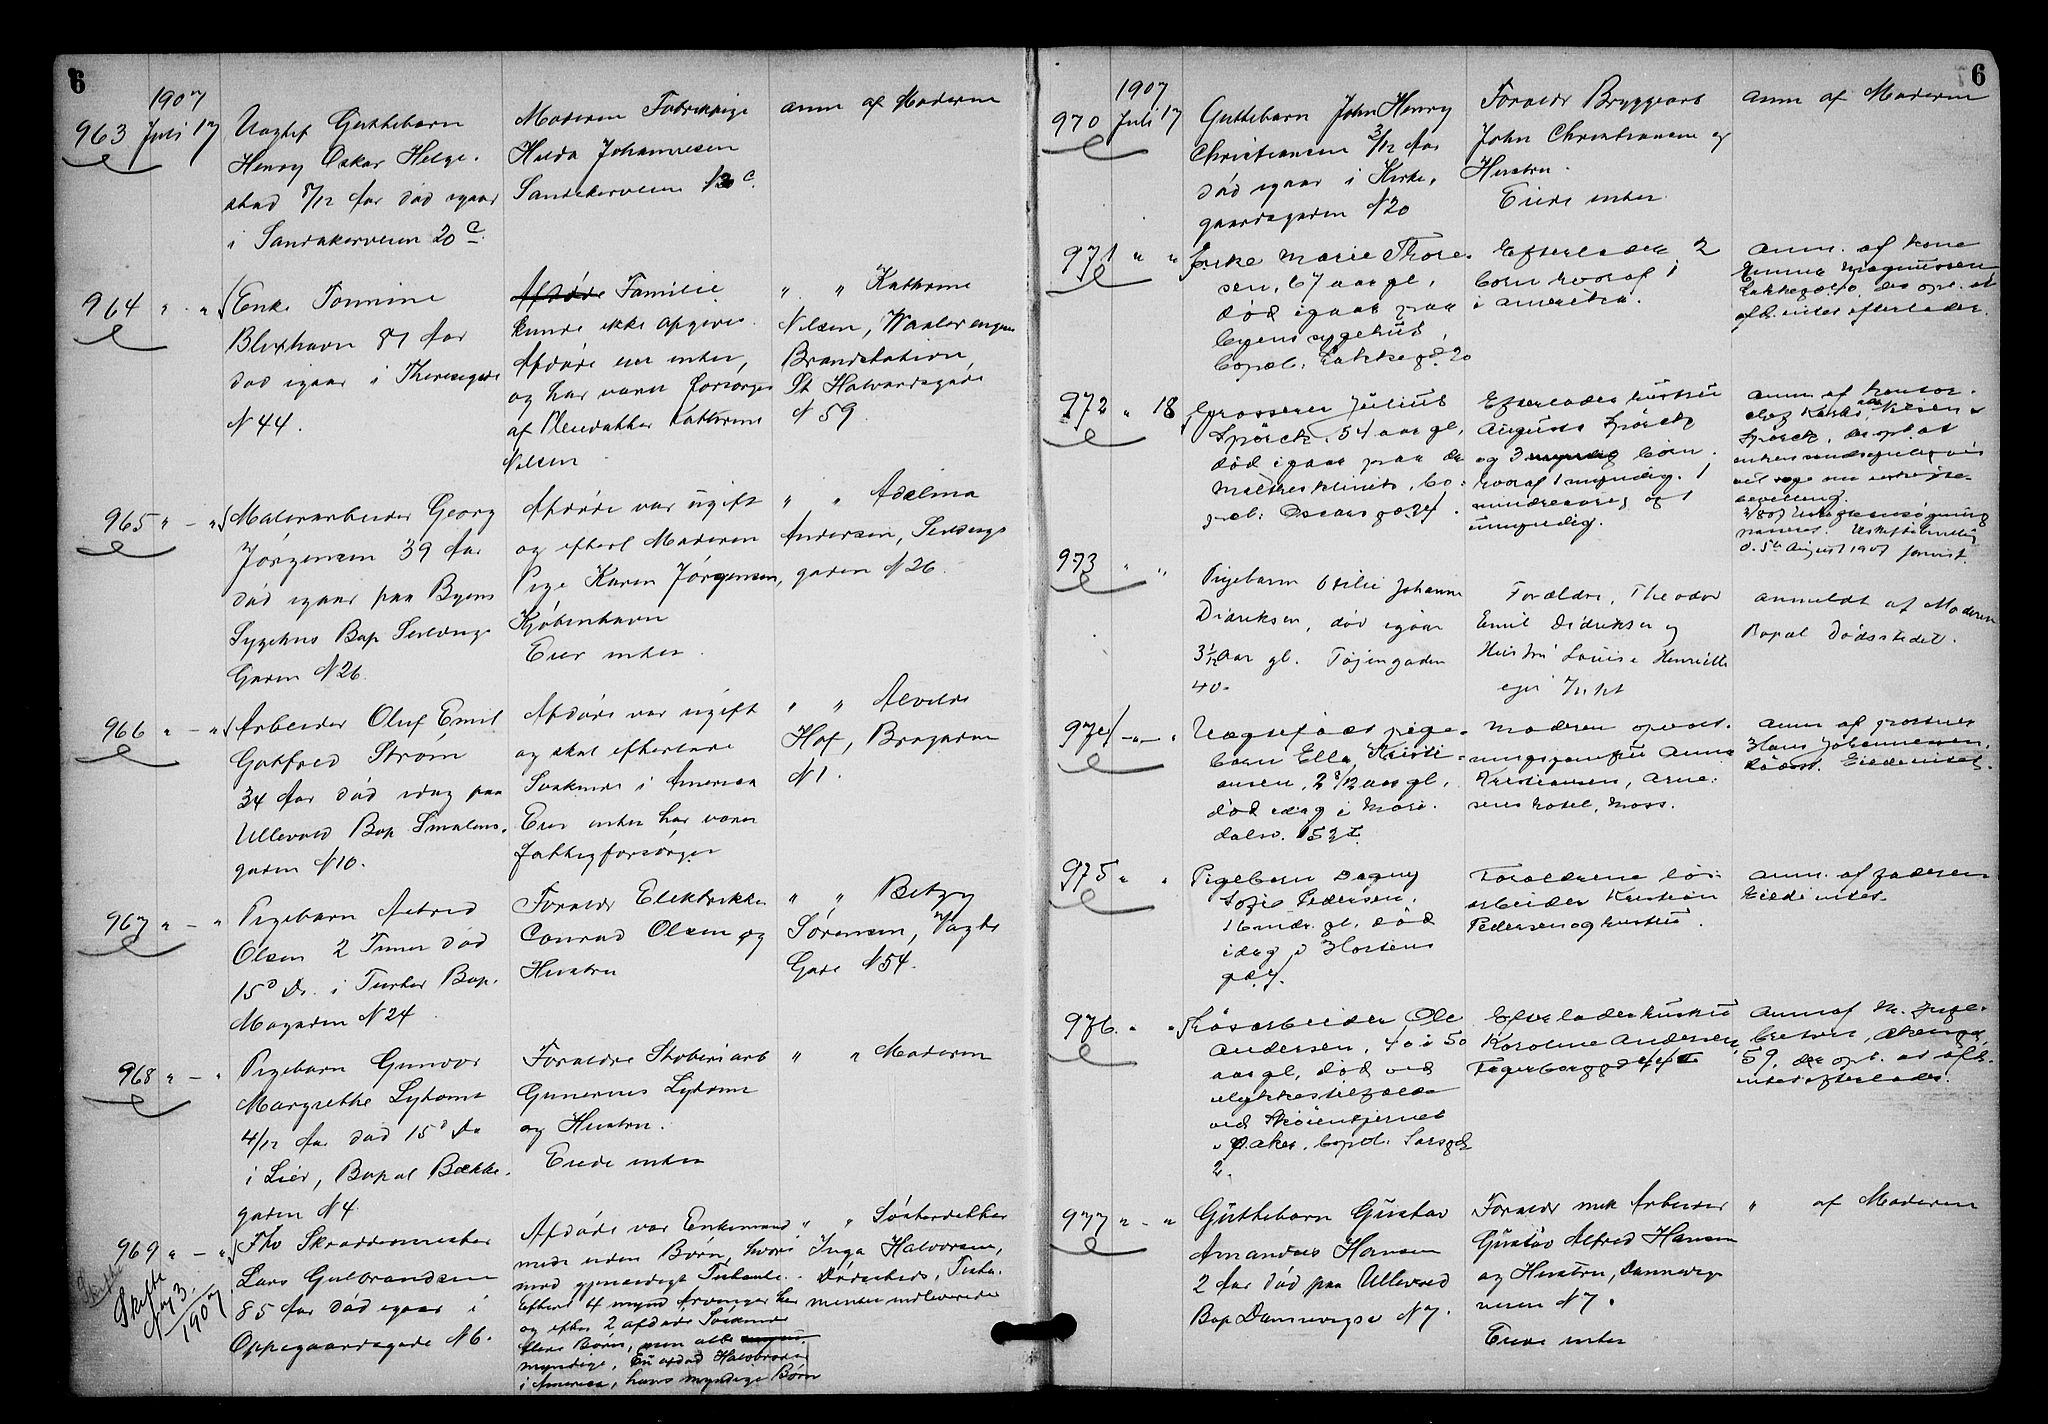 6
1907
963 Juli 17
Uægtef Guttebarn
Henry Oskar Helge-
stad 5/12 Aar død igaar
i Sandakerveien 20 c.
Moderen Fabrikpige
Hilda Johannesen
Sandakerveien c.
anm af Moderen
964 " - "
Enke Tomine
Blexhavn 87 Aar
død igaar i Theresesgade
N 44.
Afdøde Familie
kunde ikke opgives.
Afdøde eier inten,
og har været forsørget
af Pleiedatter Kathrine
Nilsen
" " Kathrine
Nilsen, Waalerengen
Brandstation,
St Halvardsgade
N 59.
965 " - "
Malerarbeider Georg
Jørgensen 39 Aar
død igaar paa Byens
Sygehus Bop
Gaden N 26.
Afdøde var ugift
og efterl Moderen
Pige Karen Jørgensen,
Kjøbenhavn
Eier inten.
" " Adelina
Andersen,
gaden N 26.
966 " - "
Arbeider Oluf Emil
Gotfred Strøm
34 Aar død idag paa
Ullevold Bop Smalens-
gaden N 10.
Afdøde var ugift
og skal efterlade
Søskende i Amerika
Eier inten har været
fattigforsørget
" " Alvilde
Hof, Brogaden
N 1.
967 " - "
Pigebarn Astrid
Olsen 2 Timer død
15d Ds. i Bop.
Mogaden N 24
Forældr Elektrikker
Conrad Olsen og
Hustru
" " Betzy
Sørensen, Vogts
Gade N 54.
968 " - "
Pigebarn Gunvor
Margrethe
4/12 Aar død 15d Ds
i Lier, Bopæl Bække-
gaden N 4
Forældre Støberiarb
Gunerius
og Hustru.
Eiede inten
" " Moderen
969 " - "
Skifte
No 3
1907
Fhv Skræddermester
Lars Gulbrandsen
85 Aar død igaar i
Oppegaardsgade N 6.
Afdøde var Enkemand
med uden Børn, hvori
med gjensidigt Testamente.
Efterl 4 mynd Arvinger har
og efter 2 afdøde Søskende
flere Børn, men alle
myndige, En afdød Halvbroder
i Amerika, hans myndige Børn
" " Søsterdatter
Inga Halvorsen,
Dødsstedet, Testa-
mentet indleverede
6
1907
970 Juli 17
Guttebarn John Henry
Christiansen 3/12 Aar
død igaar i Kirke-
gaardsgaden N 20
Forældr Bryggearb
John Christiansen og
Hustru.
Eiede inten.
anm af Moderen
971 " "
Enke Marie Thore-
sen, 67 aar gl,
død igaar paa
byens sygehus,
bopæl. Lakkegd. 20
Efterlader 2
børn hvoraf 1
i amerika.
anm. af kone
Emma Magnussen,
Lakkeg. 20, der opl. at
afd. intet efterlader.
972 " 18
Grosserer Julius
Spørck, 54 aar gl,
død igaar paa
klinik, bo-
pæl: Oscars g.
Efterlader hustru
Augusta Spørck
og 3 myndig børn,
hvoraf 1 myndig, 1
mindreaarig og 1
umyndig.
anm. af kontor-
chef Nilsen
Spørck, der opl. at
enken
vil søge om uskifte-
bevilling.
d. 5te August 1907
973 " "
Pigebarn Otilie Johanne
Didriksen, død igaar
3 1/12 aar gl. Tøjengaden
40.
Forældre, Theodor
Emil Didriksen og
Hustru Louise Henriette
eier Intet
anmeldt af Moderen
Bopæl Dødsstedet.
974 " - "
Uægtefødt pige-
barn Ella Kristi-
ansen, 2 8/12 aar gl,
død idag i Mari-
dalsv.
Moderen opvart-
ningsjomfru Anna
Kristiansen, Arne-
sens hotel, Moss.
anm af grosserer
Hans Johannessen,
Eiede intet.
975 " "
Pigebarn Dagny
Sofie Pedersen,
16 mdr. gl, død
idag i Horstens
gd.
Forældrene løs-
arbeider Kristian
Pedersen og hustru.
anm. af faderen
Eiede intet.
976. " "
Løsarbeider Ole
Andersen, 40 a 50
aar gl, død ved
ulykkestilfælde
ved Skøienkjernet
i Ø. Aker, bopæl: Sarsgd
2.
Efterlader hustru
Karoline Andersen,
Fagerborggd
anm af
59, der opl. at afd.
intet efterlader.
977 " - "
Guttebarn Gustav
Amandus Hansen
2 Aar død paa Ullevold
Bop Dannevigsv N 7.
Forældr mek Arbeider
Gustav Alfred Hansen
og Hustru, Dannevigs
veien N 7.
Eiede inten
" af Moderen